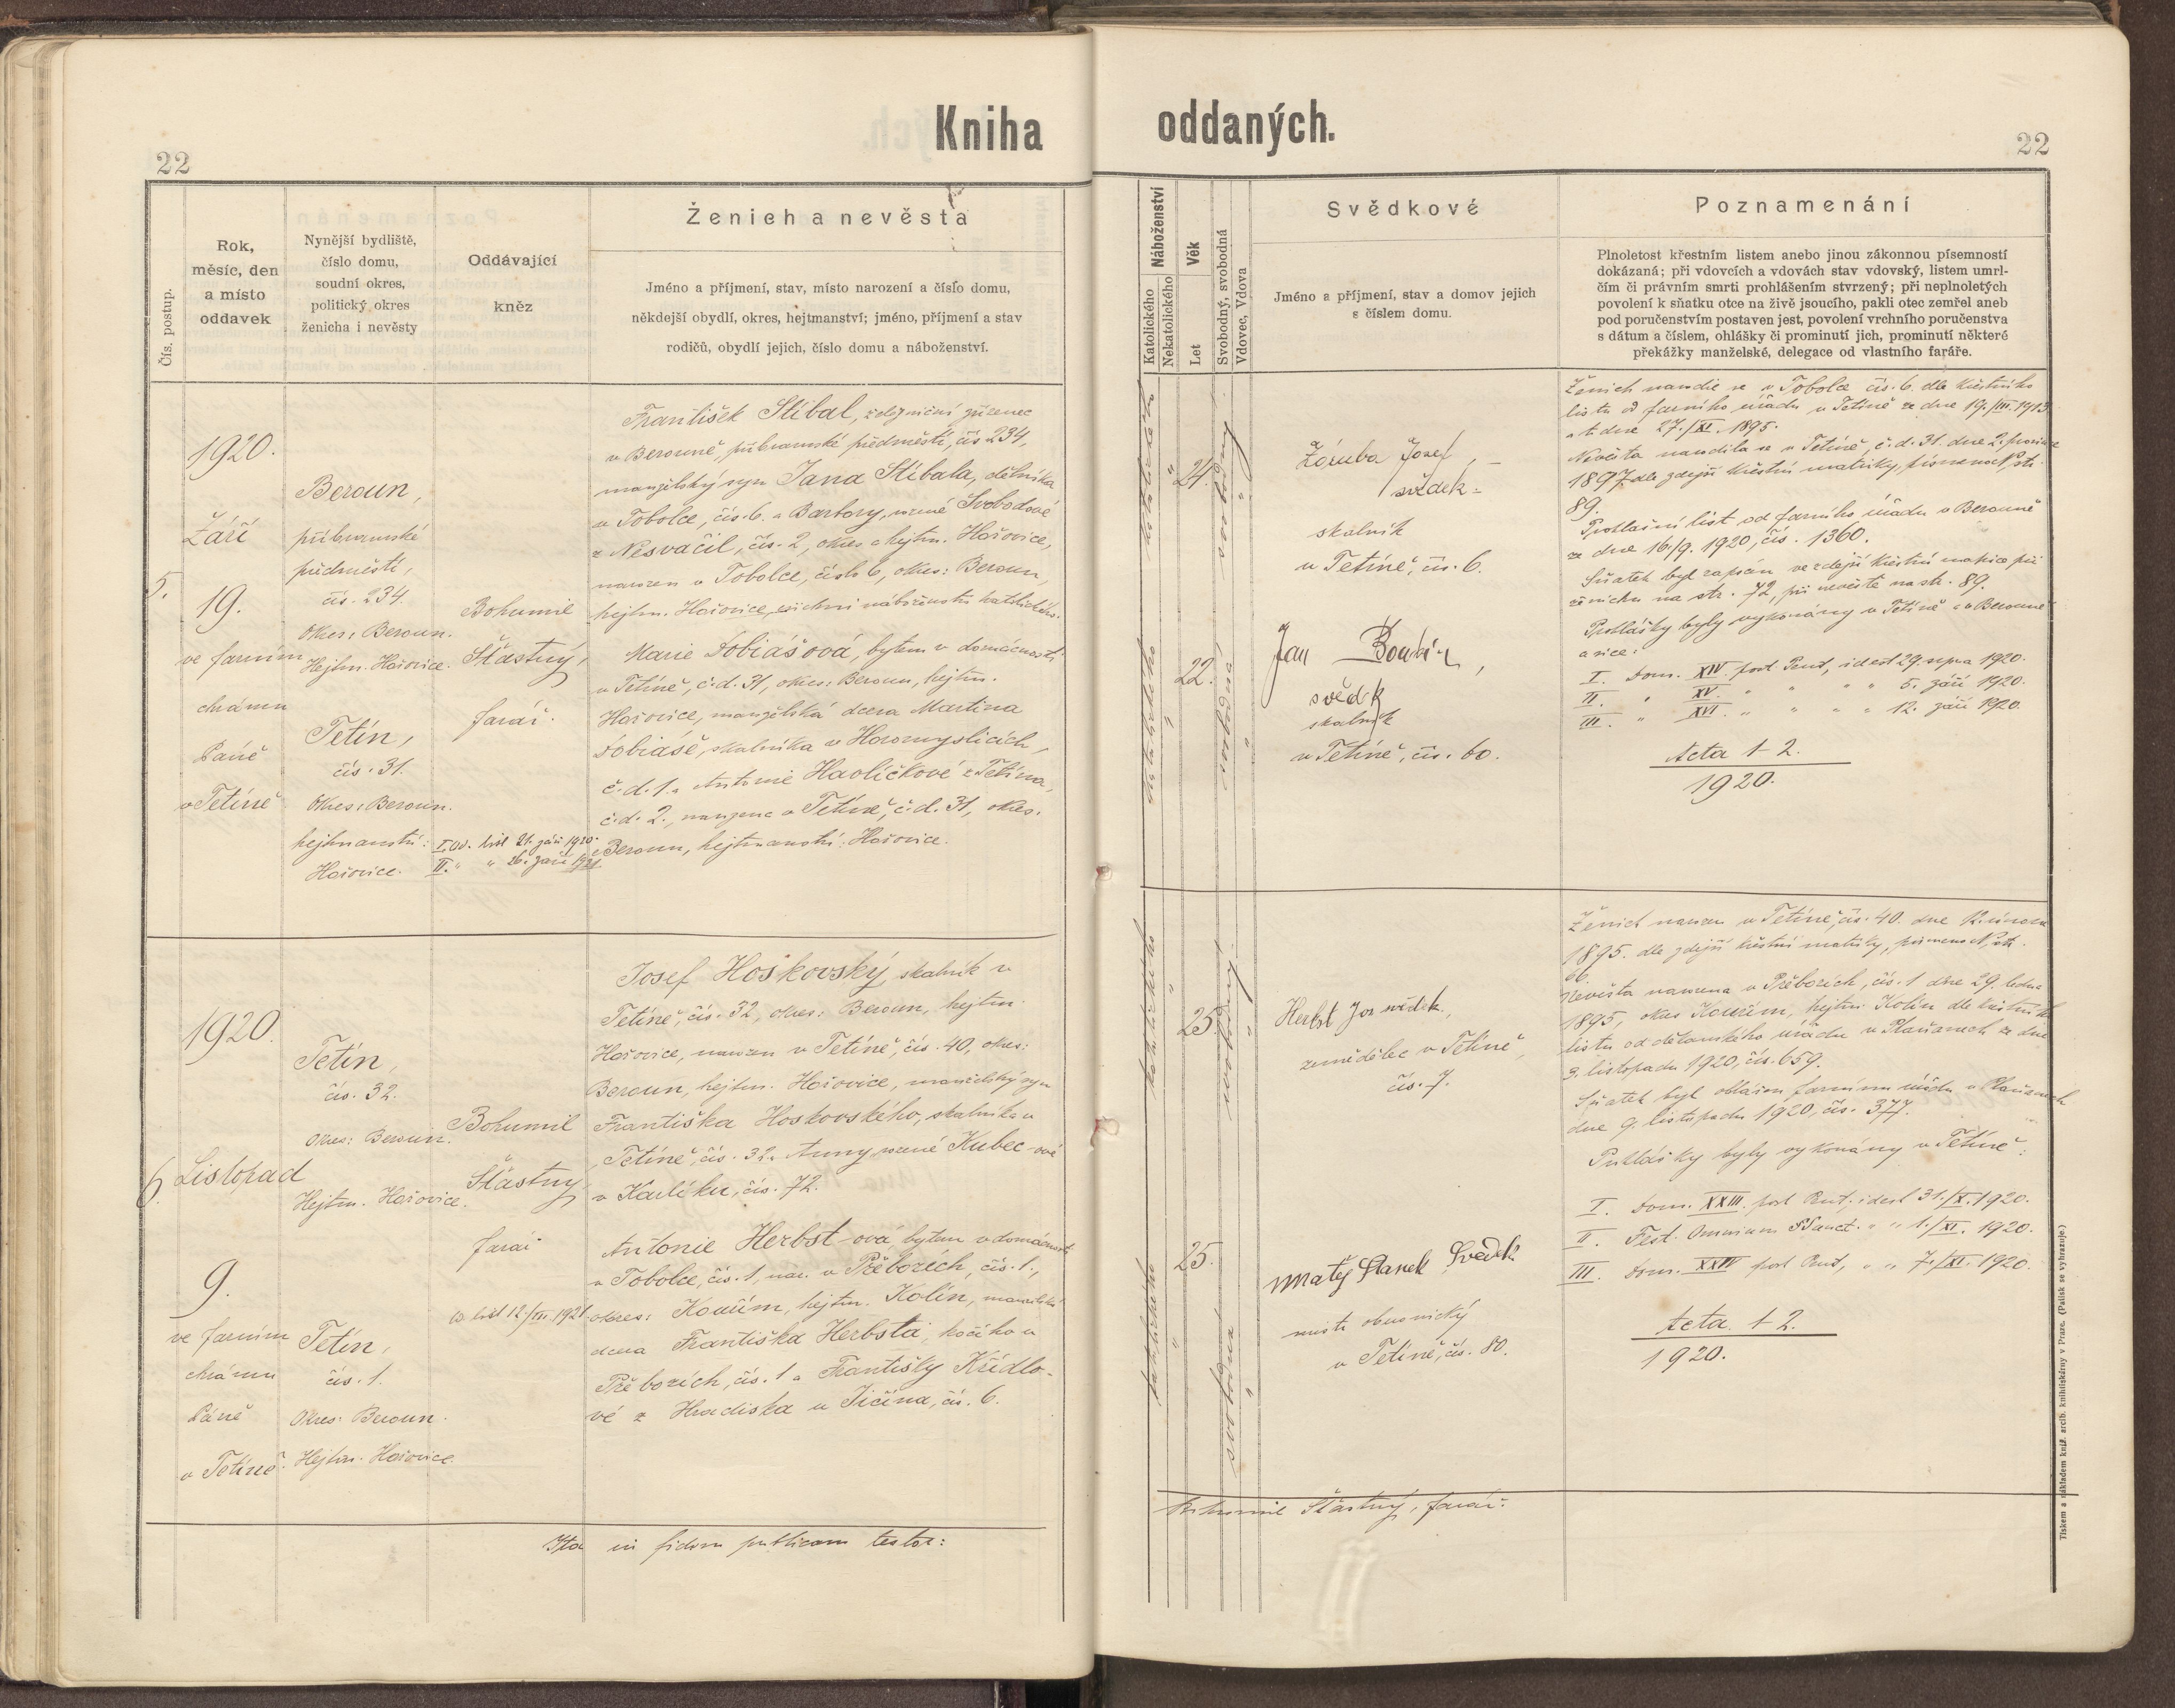 Kniha
oddaných.
22
22
Čís. postup.
Rok,
měsíc, den
a místo
oddavek
Nynější bydliště,
číslo domu,
soudní okres,
politický okres
ženicha i nevěsty
Oddávající
kněz
Ženich a nevěsta
Jméno a příjmení, stav, místo narození a číslo domu,
někdejší obydlí, okres, hejtmanství; jméno, příjmení a stav
rodičů, obydlí jejich, číslo domu a náboženství.
Náboženství
Katolického
Nekatolického
Věk
Let
Svobodný, svobodná
Vdovec, Vdova
Svědkové
Jméno a příjmení, stav a domov jejich
s číslem domu.
Poznamenání
Plnoletost křestním listem anebo jinou zákonnou písemností
dokázaná; při vdovcích a vdovách stav vdovský, listem umrl-
čím či právním smrti prohlášením stvrzený; při neplnoletých
povolení k sňatku otce na živě jsoucího, pakli otec zemřel aneb
pod poručenstvím postaven jest, povolení vrchního poručenstva
s dátum a číslem, ohlášky či prominutí jich, prominutí některé
překážky manželské, delegace od vlastního faráře.
5.
1920.
Září
19.
ve farním
chrámu
Páně
v Tetíně
Beroun,
příbramské
předměstí,
čís. 234.
Okres: Beroun.
Hejtm. Hořovice.
Tetín,
čís. 31.
Okres: Beroun.
hejtmanství:
Hořovice.
Bohumil
Šťastný,
farář.
I. od. list 21. září 1920.
II. " " 26. září
František Stibal, železniční zřízenec
v Berouně, příbramské předměstí, čís 234,
manželský syn Jana Stibala, dělníka
v Tobolce, čís. 6. a Barbory, rozené Svobodové
z Nesvačil, čís. 2, okres a hejtm. Hořovice,
narozen v Tobolce, číslo 6, okres: Beroun,
hejtm. Hořovice, všichni náboženství katolického.
Marie Tobiášová, bytem v domácnosti
v Tetíně, č. d. 31, okres: Beroun, hejtm.
Hořovice, manželská dcera Martina
Tobiáše, skalníka v Horomyslicích,
č. d. 1. a Antonie Havlíčkové z Tetína,
č. d. 2., narozena v Tetíně, č. d. 31, okres.
Beroun, hejtmanství: Hořovice.
katolického
"
24.
svobodný
"
katolického
"
22.
svobodná
"
Záruba Josef,
svědek
skalník
v Tetíně, čís. 6.
Jan
svědk
skalník
v Tetíně, čís. 60.
Ženich narodil se v Tobolce čís. 6. dle křestního
listu od farního úřadu v Tetíně ze dne 19./III. 1913
a t. dne 27./XI. 1895.
Nevěsta narodila se v Tetíně, č. d. 31. dne 2. prosince
1897 dle zdejší křestní matriky, písmeno N, str.
89.
Prohlašní list od farního úřadu v Berouně
ze dne 16./9. 1920, čís. 1360.
Sňatek byl zapsán ve zdejší křestní matrice při
ženichu na str. 72, při nevěstě na str. 89.
Prohlášky byly vykonány v Tetíně i v Berouně
a sice:
I. Dom. XIV. post Pent., id est 29. srpna 1920.
II. " XV. " " " " 5. září 1920.
III. " XVI. " " " " 12. září 1920.
Acta 1-2.
1920.
6.
1920.
Listopad
9.
ve farním
chrámu
Páně
v Tetíně.
Tetín,
čís. 32.
Okres: Beroun.
Hejtm. Hořovice.
Tetín,
čís. 1.
Okres: Beroun.
Hejtm. Hořovice.
Bohumil
Šťastný,
farář
list 12./III. 1921.
Josef Hoskovský, skalník v
Tetíně, čís. 32, okres: Beroun, hejtm.
Hořovice, narozen v Tetíně, čís. 40, okres:
Beroun, hejtm. Hořovice, manželský syn
Františka Hoskovského, skalníka v
Tetíně, čís. 32 a Anny, rozené Kubec-ové
v Karlíku, čís. 72.
Antonie Herbst-ová bytem v domácnosti
v Tobolce, čís. 1, nar. v Přebozích, čís. 1.,
okres: Kouřim, hejtm. Kolín, manželská
dcera Františka Herbsta, kočího v
Přebozích, čís. 1 a Františky Křídlo-
vé z Hradiska u Jičína, čís. 6.
katolického
"
25.
svobodný
"
katolického
"
25.
svobodná
"
Herbst Jos svědek,
zemědělec v Tetíně,
čís. 7.
Matěj Stanek Svědek
mistr obuvnický
v Tetíně, čís. 80.
Ženich narozen v Tetíně, čís. 40. dne 12. února
1895. dle zdejší křestní matriky, písmeno N, str.
66.
Nevěsta narozena v Přebozích, čís. 1 dne 29. ledna
1895, okres Kouřim, hejtm. Kolín dle křestního
listu od děkanského úřadu v Plaňanech ze dne
3. listopadu 1920, čís. 659.
Sňatek byl ohlášen farnímu úřadu v Plaňanech
dne 9. listopadu 1920, čís. 377.
Prohlášky byly vykonány v Tetíně:
I. Dom. XXIII. post Pent., id est 31./X. 1920.
II. Fest. Omnium SSanct. " " 1./XI. 1920.
III. Dom. XXIV post Pent, " " 7./XI. 1920.
Acta 1-2.
1920.
Ita in fidem publicam testor:
Bohumil Šťastný, farář.
Tiskem a nákladem kníž. arcib. knihtiskárny v Praze. (Patisk se vyhrazuje.)